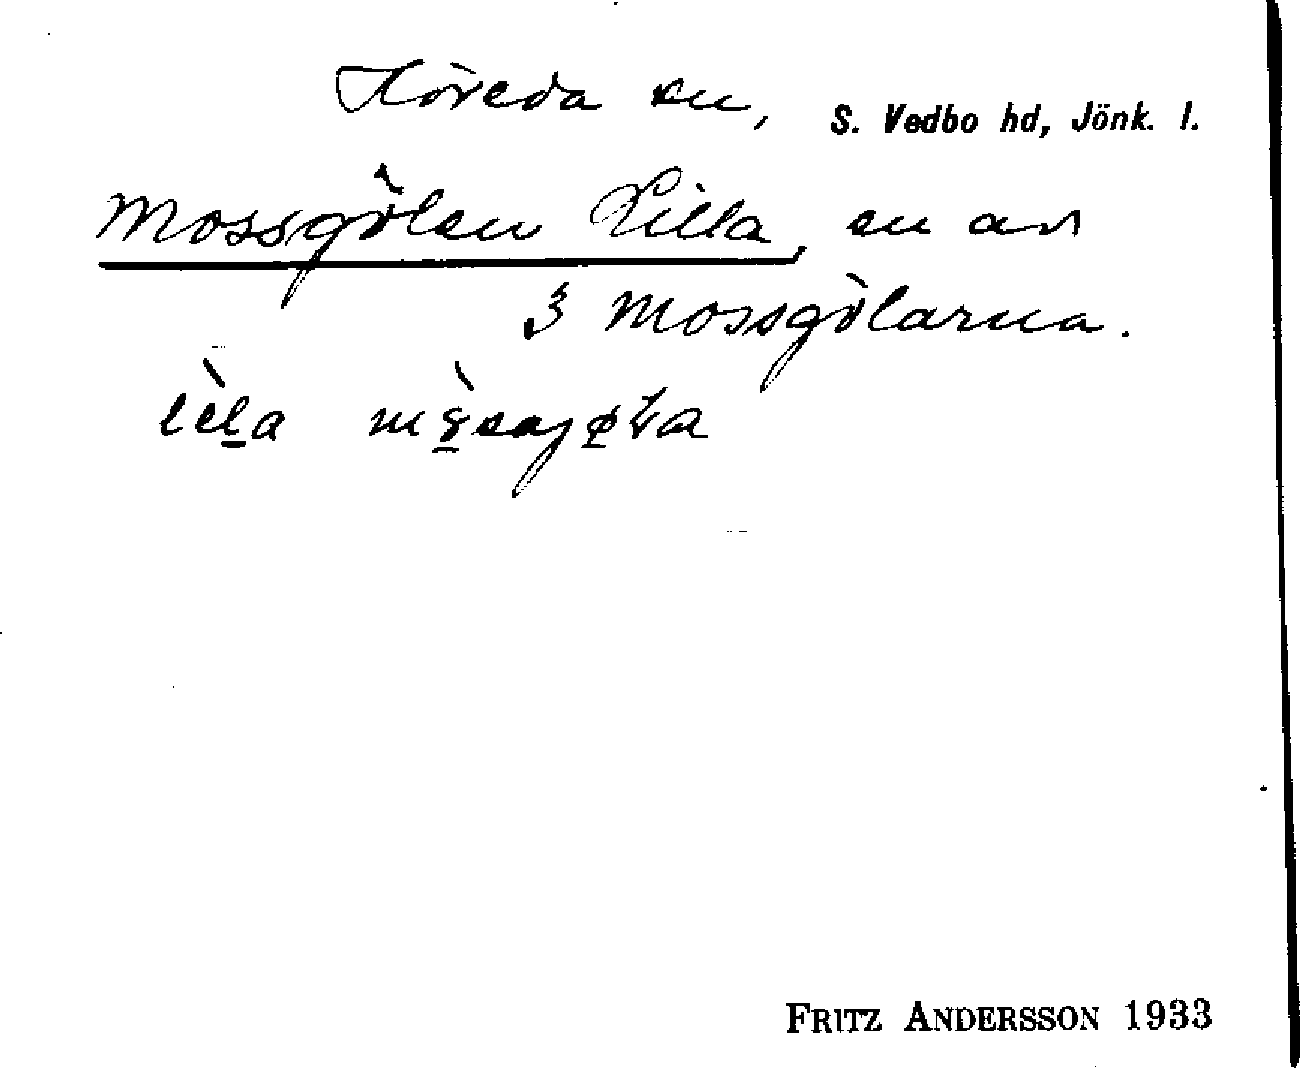 Höreda sn, S. Vedbo hd, Jönk. l.
Mossgölen Lilla, en av
3 Mossgölarna.
lèla
FRITZ ANDERSSON 1933